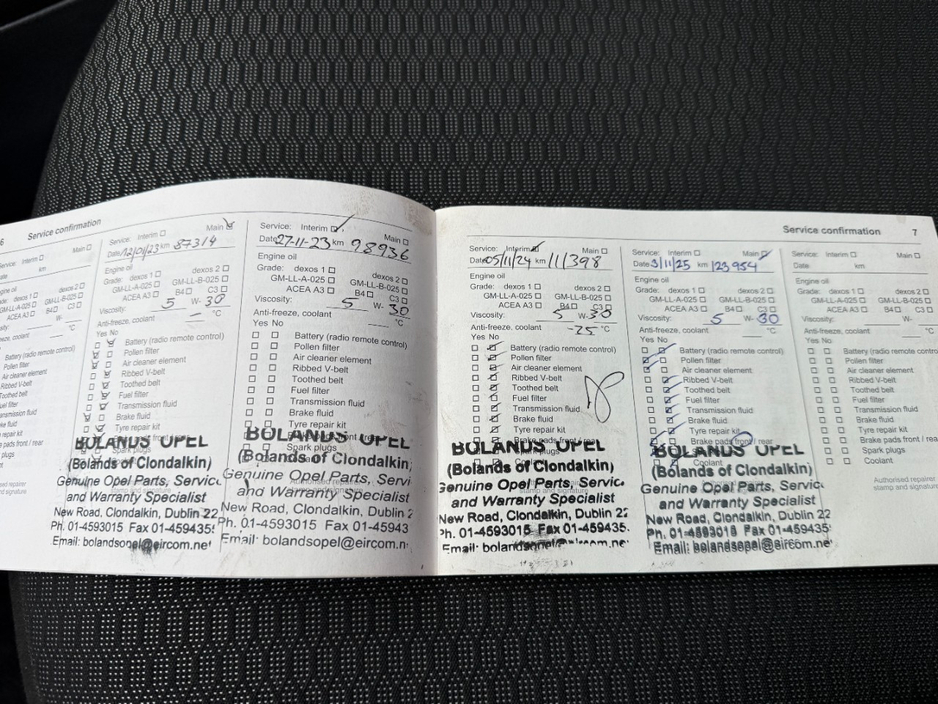 6 Service confirmation
Main
Date
km
dexos 2
GM-LL-B-025
B4 C3
W-
°C
Battery (radio remote control)
Pollen filter
Air cleaner element
Ribbed V-belt
Toothed belt
Fuel filter
Transmission fluid
Brake fluid
Tyre repair kit
Brake pads front / rear
Spark plugs
Service: Interim Main
Date 12/01/23 km 87314
Engine oil
Grade: dexos 1 dexos 2
GM-LL-A-025 GM-LL-B-025
ACEA A3 B4 C3
Viscosity: 5 W- 30
Anti-freeze, coolant - °C
Yes No
Battery (radio remote control)
Pollen filter
Air cleaner element
Ribbed V-belt
Toothed belt
Fuel filter
Transmission fluid
Brake fluid
Tyre repair kit
BOLANDS OPEL
(Bolands of Clondalkin)
Genuine Opel Parts, Servic
and Warranty Specialist
New Road, Clondalkin, Dublin 22
Ph. 01-4593015 Fax 01-459435
Email: bolandsopel@eircom.ne
Service: Interim Main
Date 27-11-23 km 98936
Engine oil
Grade: dexos 1 dexos 2
GM-LL-A-025 GM-LL-B-025
ACEA A3 B4 C3
Viscosity: 5 W- 30
Anti-freeze, coolant °C
Yes No
Battery (radio remote control)
Pollen filter
Air cleaner element
Ribbed V-belt
Toothed belt
Fuel filter
Transmission fluid
Brake fluid
Tyre repair kit
Spark plugs
BOLANDS OPEL
(Bolands of Clondalkin)
Genuine Opel Parts, Servi
and Warranty Specialist
New Road, Clondalkin, Dublin 2
Ph. 01-4593015 Fax 01-45943
Email: bolandsopel@eircom.n
Service confirmation 7
Service: Interim Main
Date 05/11/24 km 111398
Engine oil
Grade: dexos 1 dexos 2
GM-LL-A-025 GM-LL-B-025
ACEA A3 B4 C3
Viscosity: 5 W- 30
Anti-freeze, coolant -25 °C
Yes No
Battery (radio remote control)
Pollen filter
Air cleaner element
Ribbed V-belt
Toothed belt
Fuel filter
Transmission fluid
Brake fluid
Tyre repair kit
Brake pads front / rear
BOLANDS OPEL
(Bolands of Clondalkin)
Genuine Opel Parts, Servic
and Warranty Specialist
New Road, Clondalkin, Dublin 22
Ph. 01-4593015 Fax 01-459435
Service: Interim Main
Date 3/11/25 km 123954
Engine oil
Grade: dexos 1 dexos 2
GM-LL-A-025 GM-LL-B-025
ACEA A3 B4 C3
Viscosity: 5 W- 30
Anti-freeze, coolant °C
Yes No
Battery (radio remote control)
Pollen filter
Air cleaner element
Ribbed V-belt
Toothed belt
Fuel filter
Transmission fluid
Brake fluid
Tyre repair kit
Brake pads front / rear
Coolant
BOLANDS OPEL
(Bolands of Clondalkin)
Genuine Opel Parts, Servic
and Warranty Specialist
New Road, Clondalkin, Dublin 22
Ph. 01-4593015 Fax 01-459435
Email: bolandsopel@eircom.ne
Service: Interim Main
Date km
Engine oil
Grade: dexos 1 dexos 2
GM-LL-A-025 GM-LL-B-025
ACEA A3 B4 C3
Viscosity: W-
Anti-freeze, coolant °C
Yes No
Battery (radio remote contro
Pollen filter
Air cleaner element
Ribbed V-belt
Toothed belt
Fuel filter
Transmission fluid
Brake fluid
Tyre repair kit
Brake pads front / rear
Spark plugs
Coolant
Authorised repairer
stamp and signature